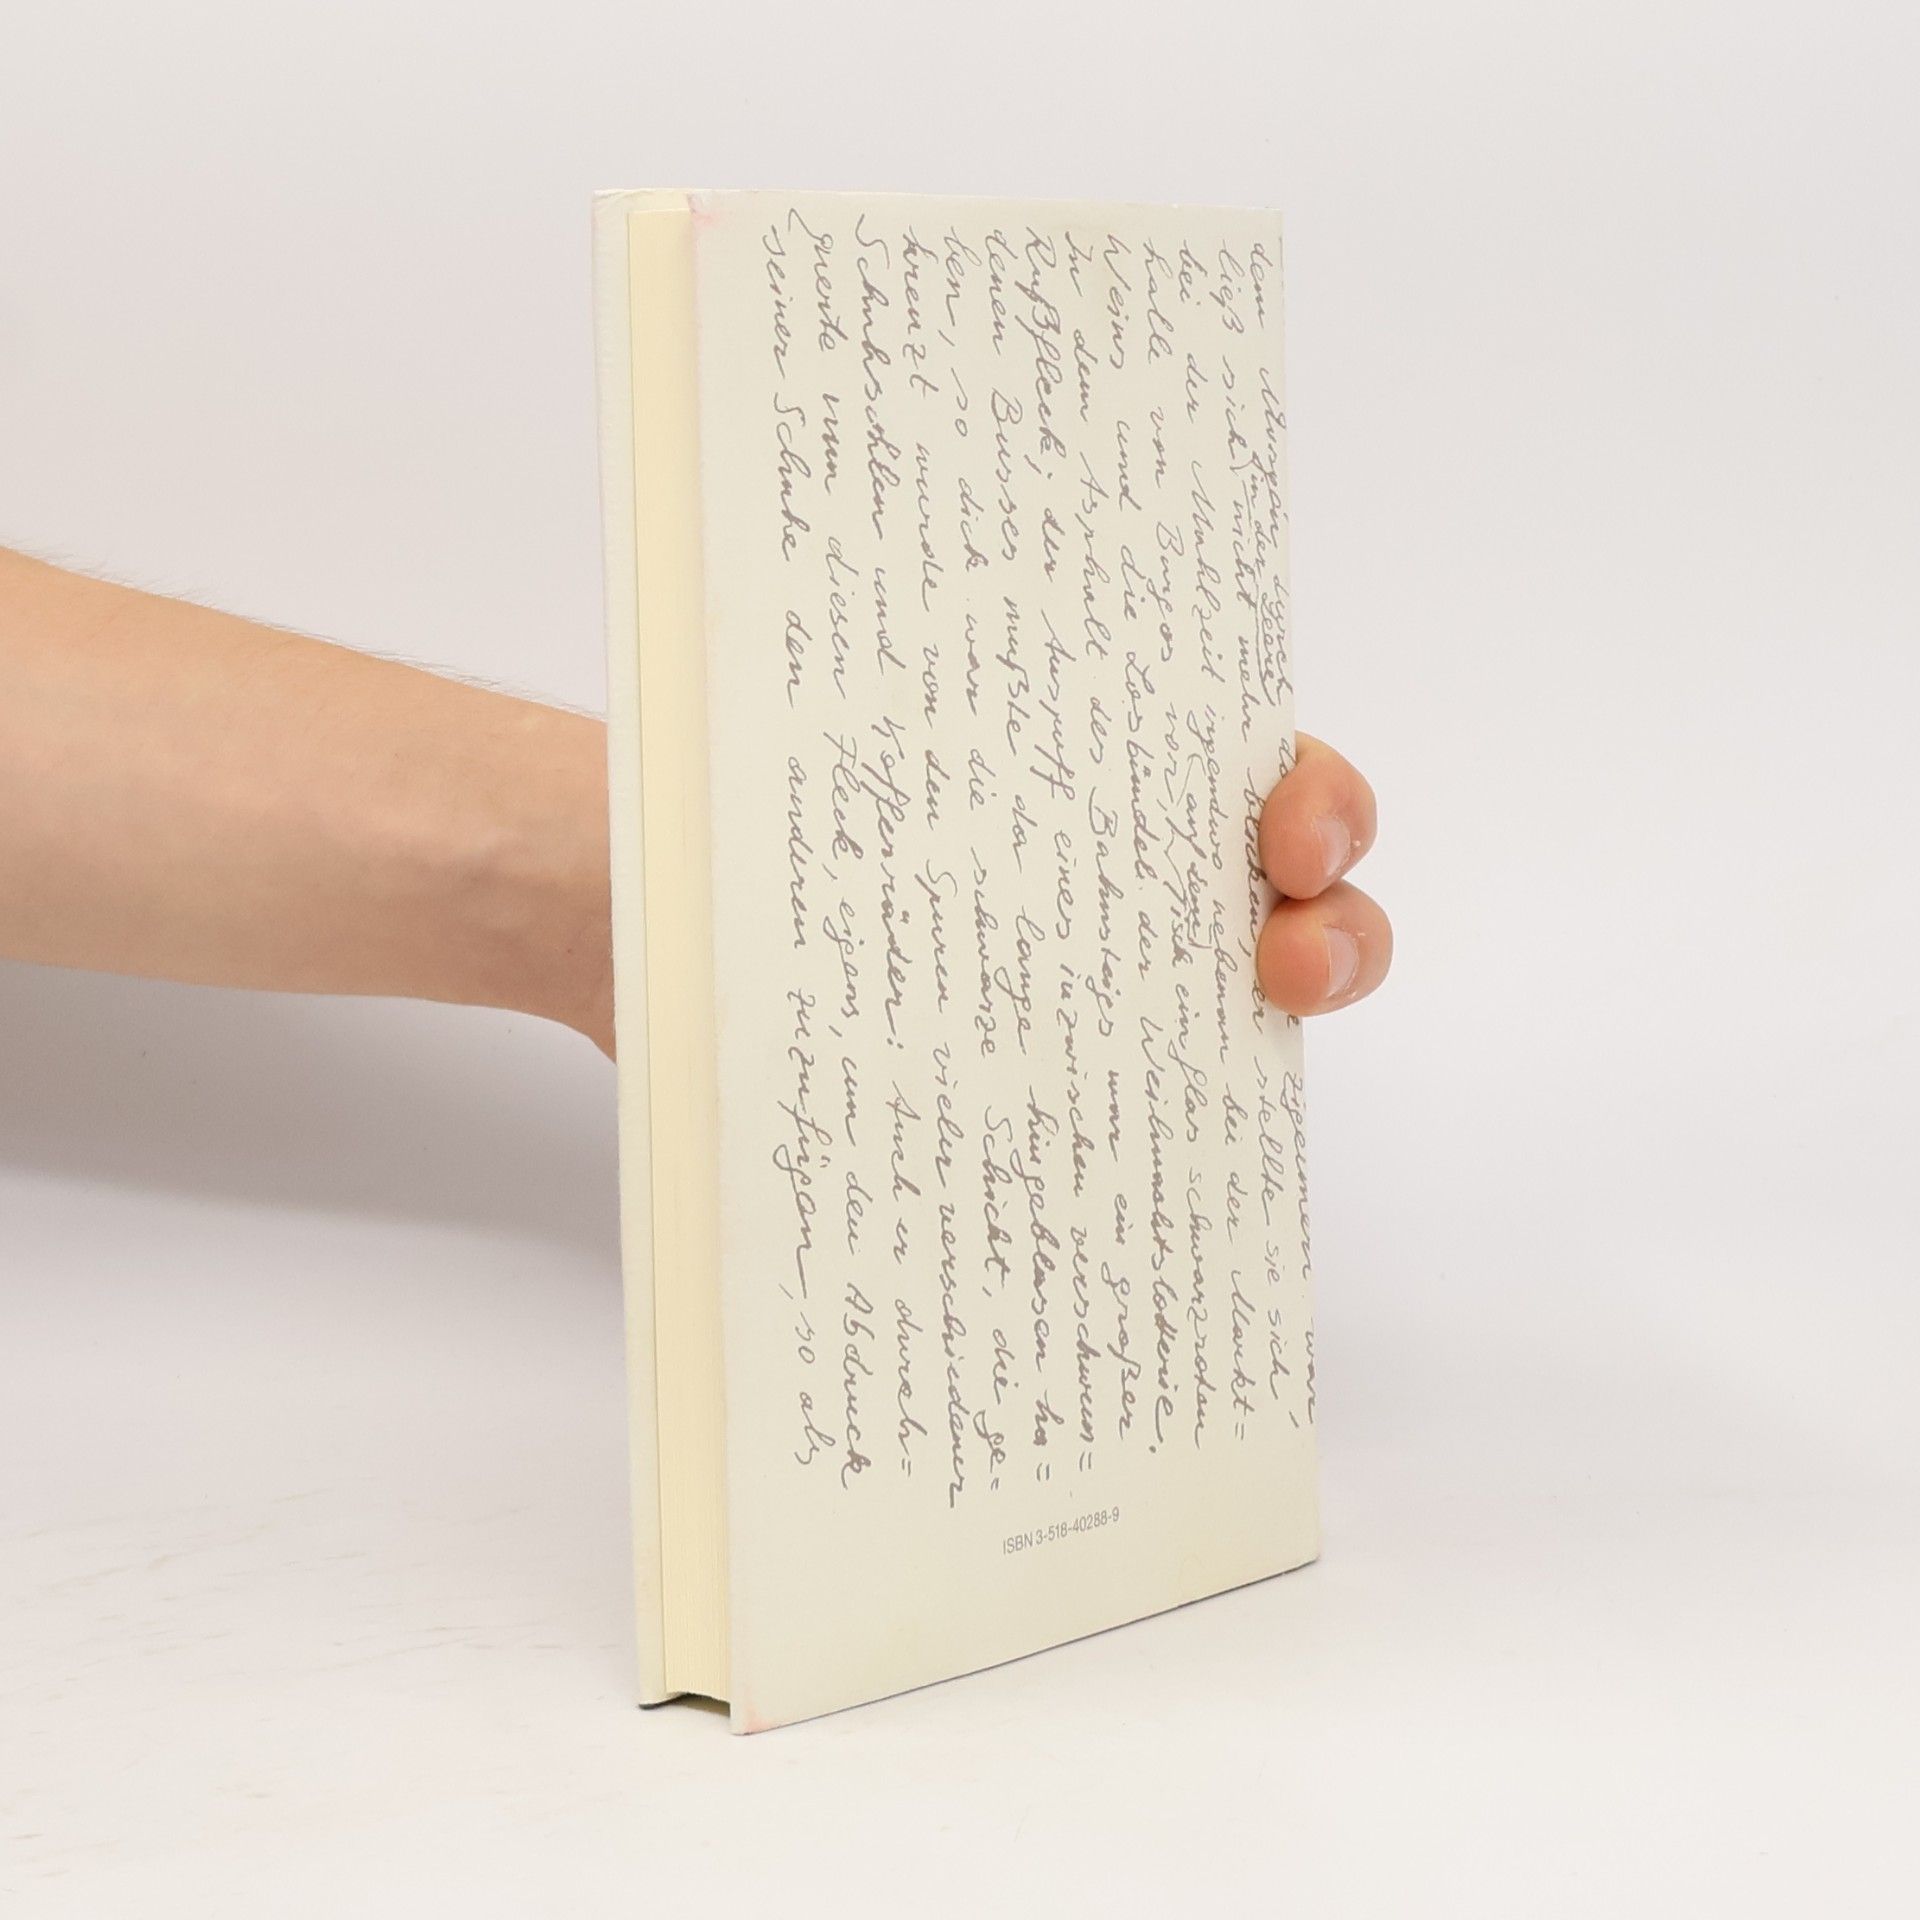 dem Auspuin durch da e Zigeuner war,
ließ sich (in der Leere) nicht mehr blicken, er stellte sie sich
bei der Mahlzeit irgendwo nebenan bei der Markt=
halle von Burgos vor, (auf dem) Tisch ein Glas schwarzroten
Weins und die Losbündel der Weihnachtslotterie.
In dem Asphalt des Bahnsteigs war ein großer
Rußfleck; der Auspuff eines inzwischen verschwun=
denen Busses mußte da lange hingeblasen ha=
ben, so dick war die schwarze Schicht, die ge=
kreuzt wurde von den Spuren vieler verschiedener
Schuhsohlen und Kofferräder: Auch er durch=
querte nun diesen Fleck, eigens, um den Abdruck
seiner Schuhe den anderen zuzufügen, so als
ISBN 3-518-40288-9